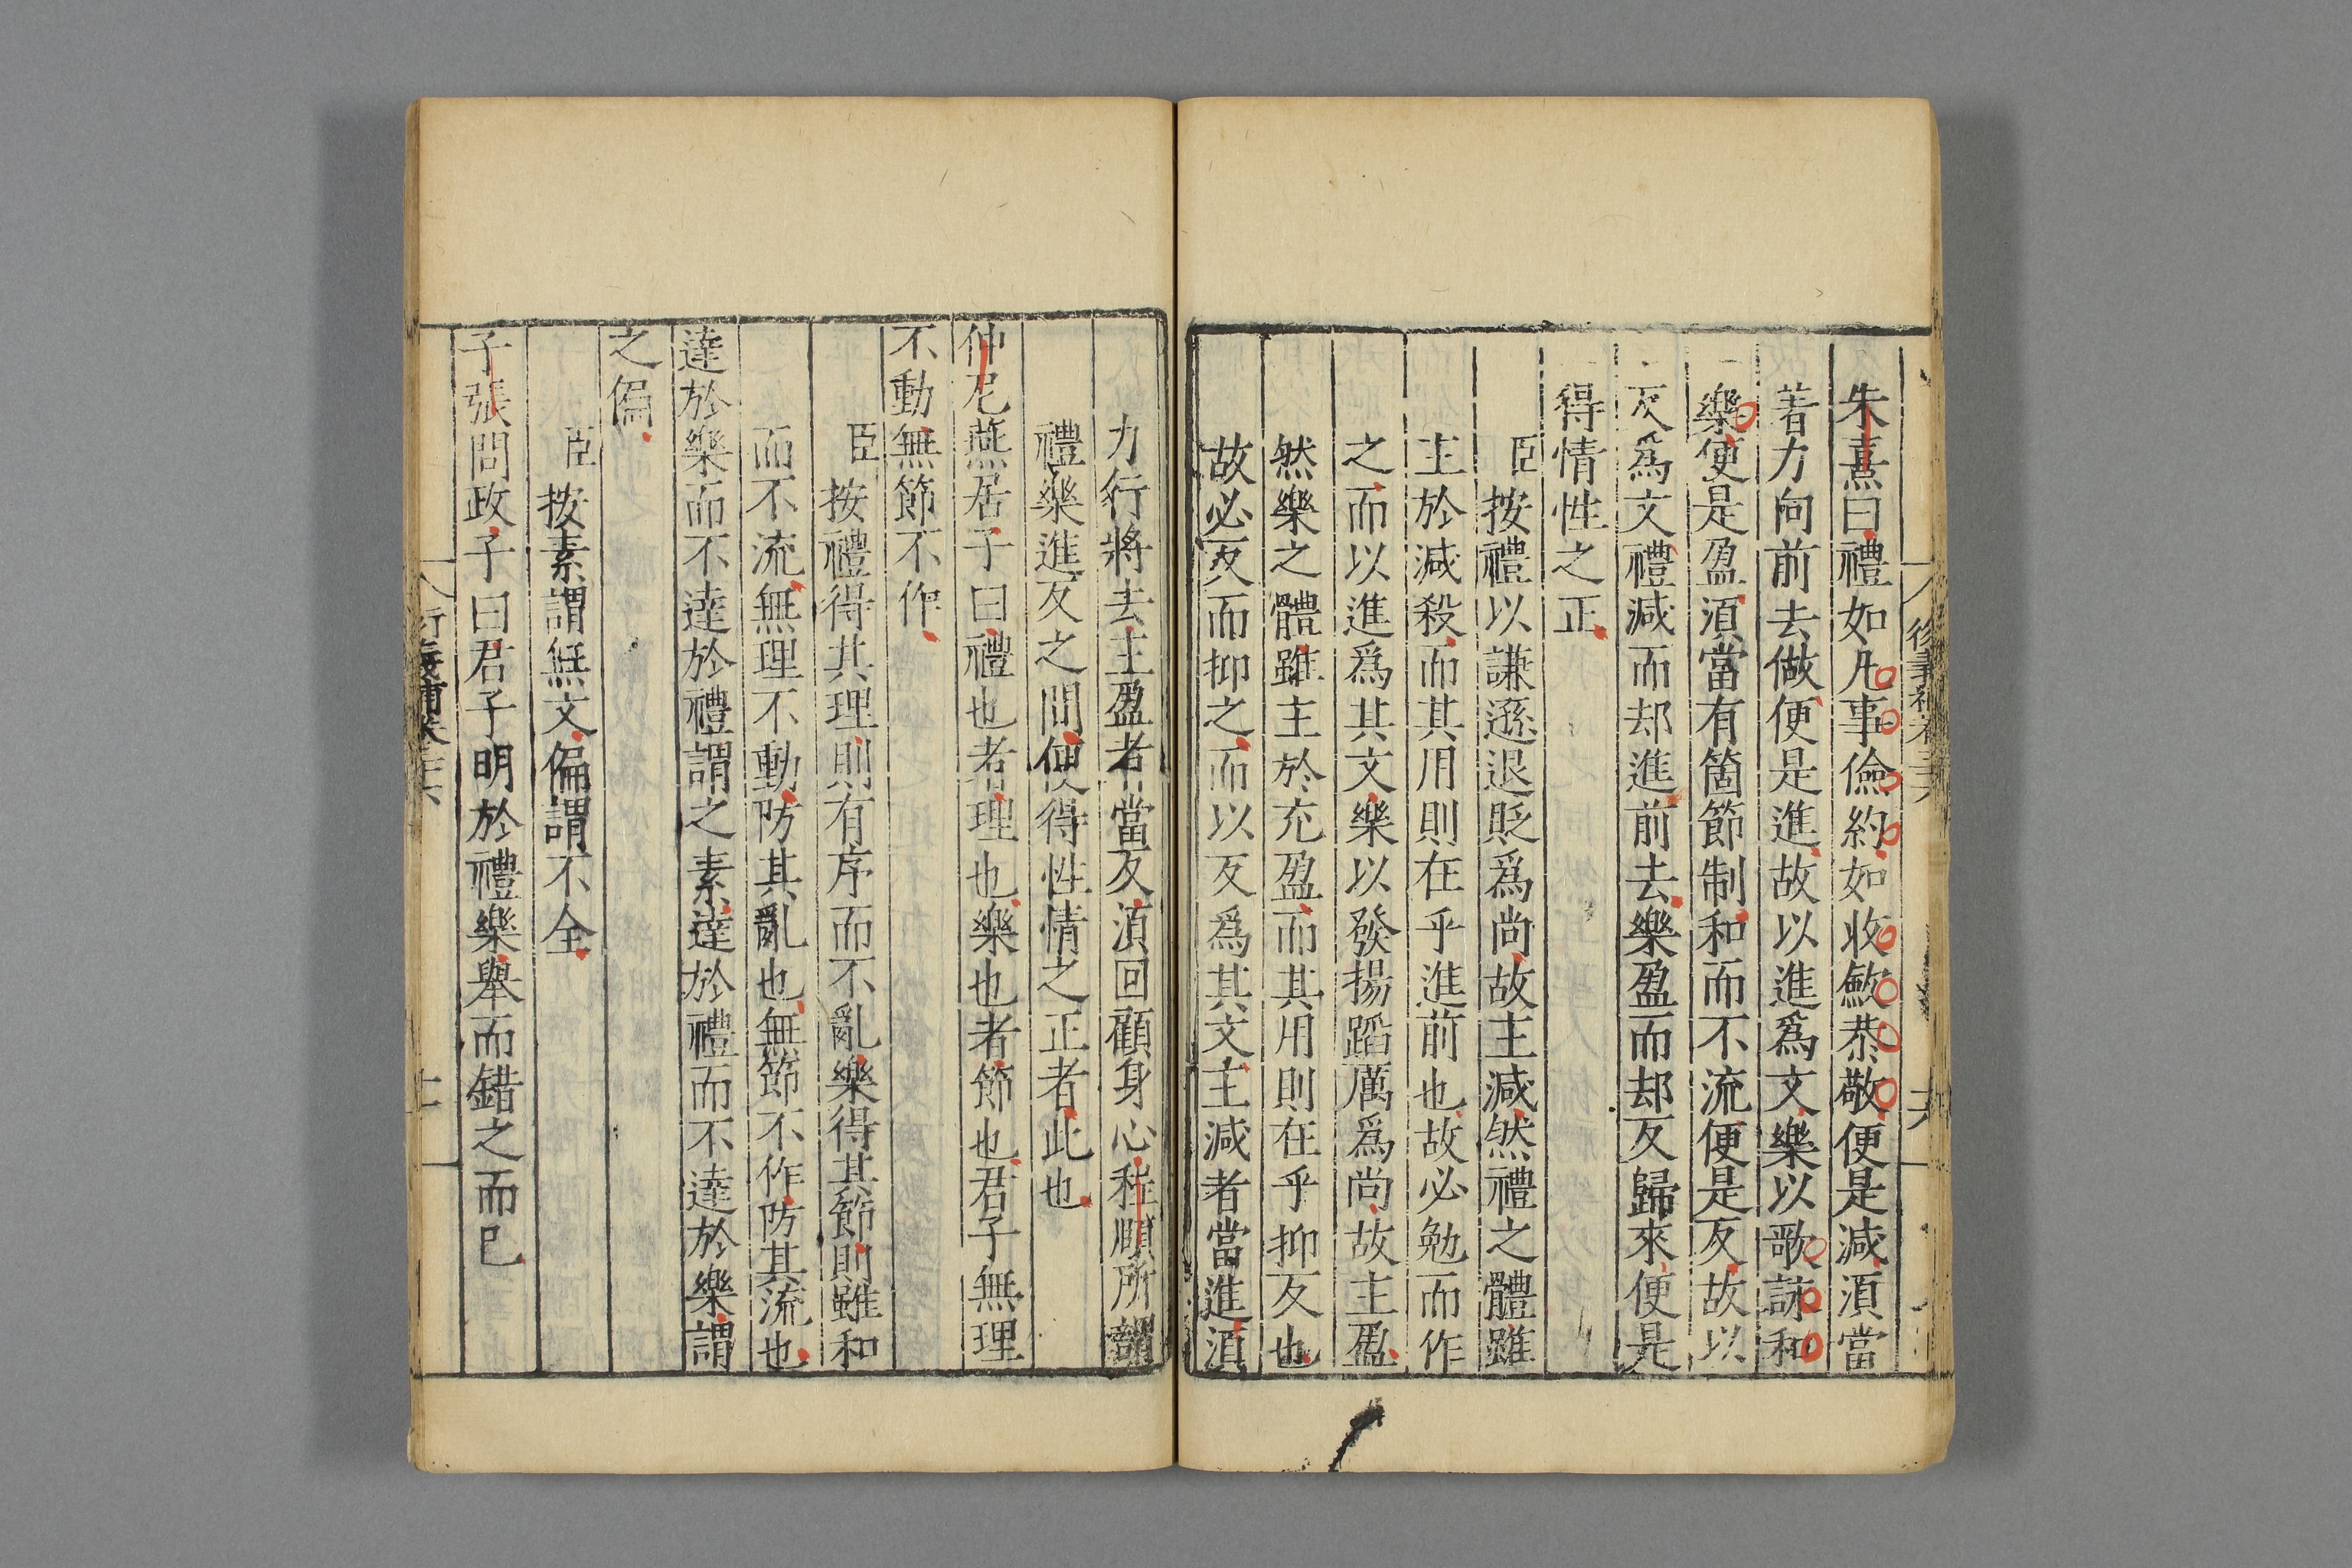 朱熹曰禮如凡事儉約如收斂恭敬便是減須當
著力向前去做便是進故以進爲文樂以歌詠和
樂便是盈須當有箇節制和而不流便是反故以
反爲文禮減而却進前去樂盈而却反歸來便是
得情性之正
臣按禮以謙遜退貶爲尚故主減然禮之體雖
主於減殺而其用則在乎進前也故必勉而作
之而以進爲其文樂以發揚蹈厲爲尚故主盈
然樂之體雖主於充盈而其用則在乎抑反也
故必反而抑之而以反爲其文主減者當進須
力行將去主盈者當反須回顧身心程頤所謂
禮樂進反之間便得性情之正者此也
仲尼燕居子曰禮也者理也樂也者節也君子無理
不動無節不作
臣按禮得其理則有序而不亂樂得其節則雖和
而不流無理不動防其亂也無節不作防其流也
達於樂而不達於禮謂之素達於禮而不達於樂謂
之偏
臣按素謂無文偏謂不全
子張問政子曰君子明於禮樂舉而錯之而已